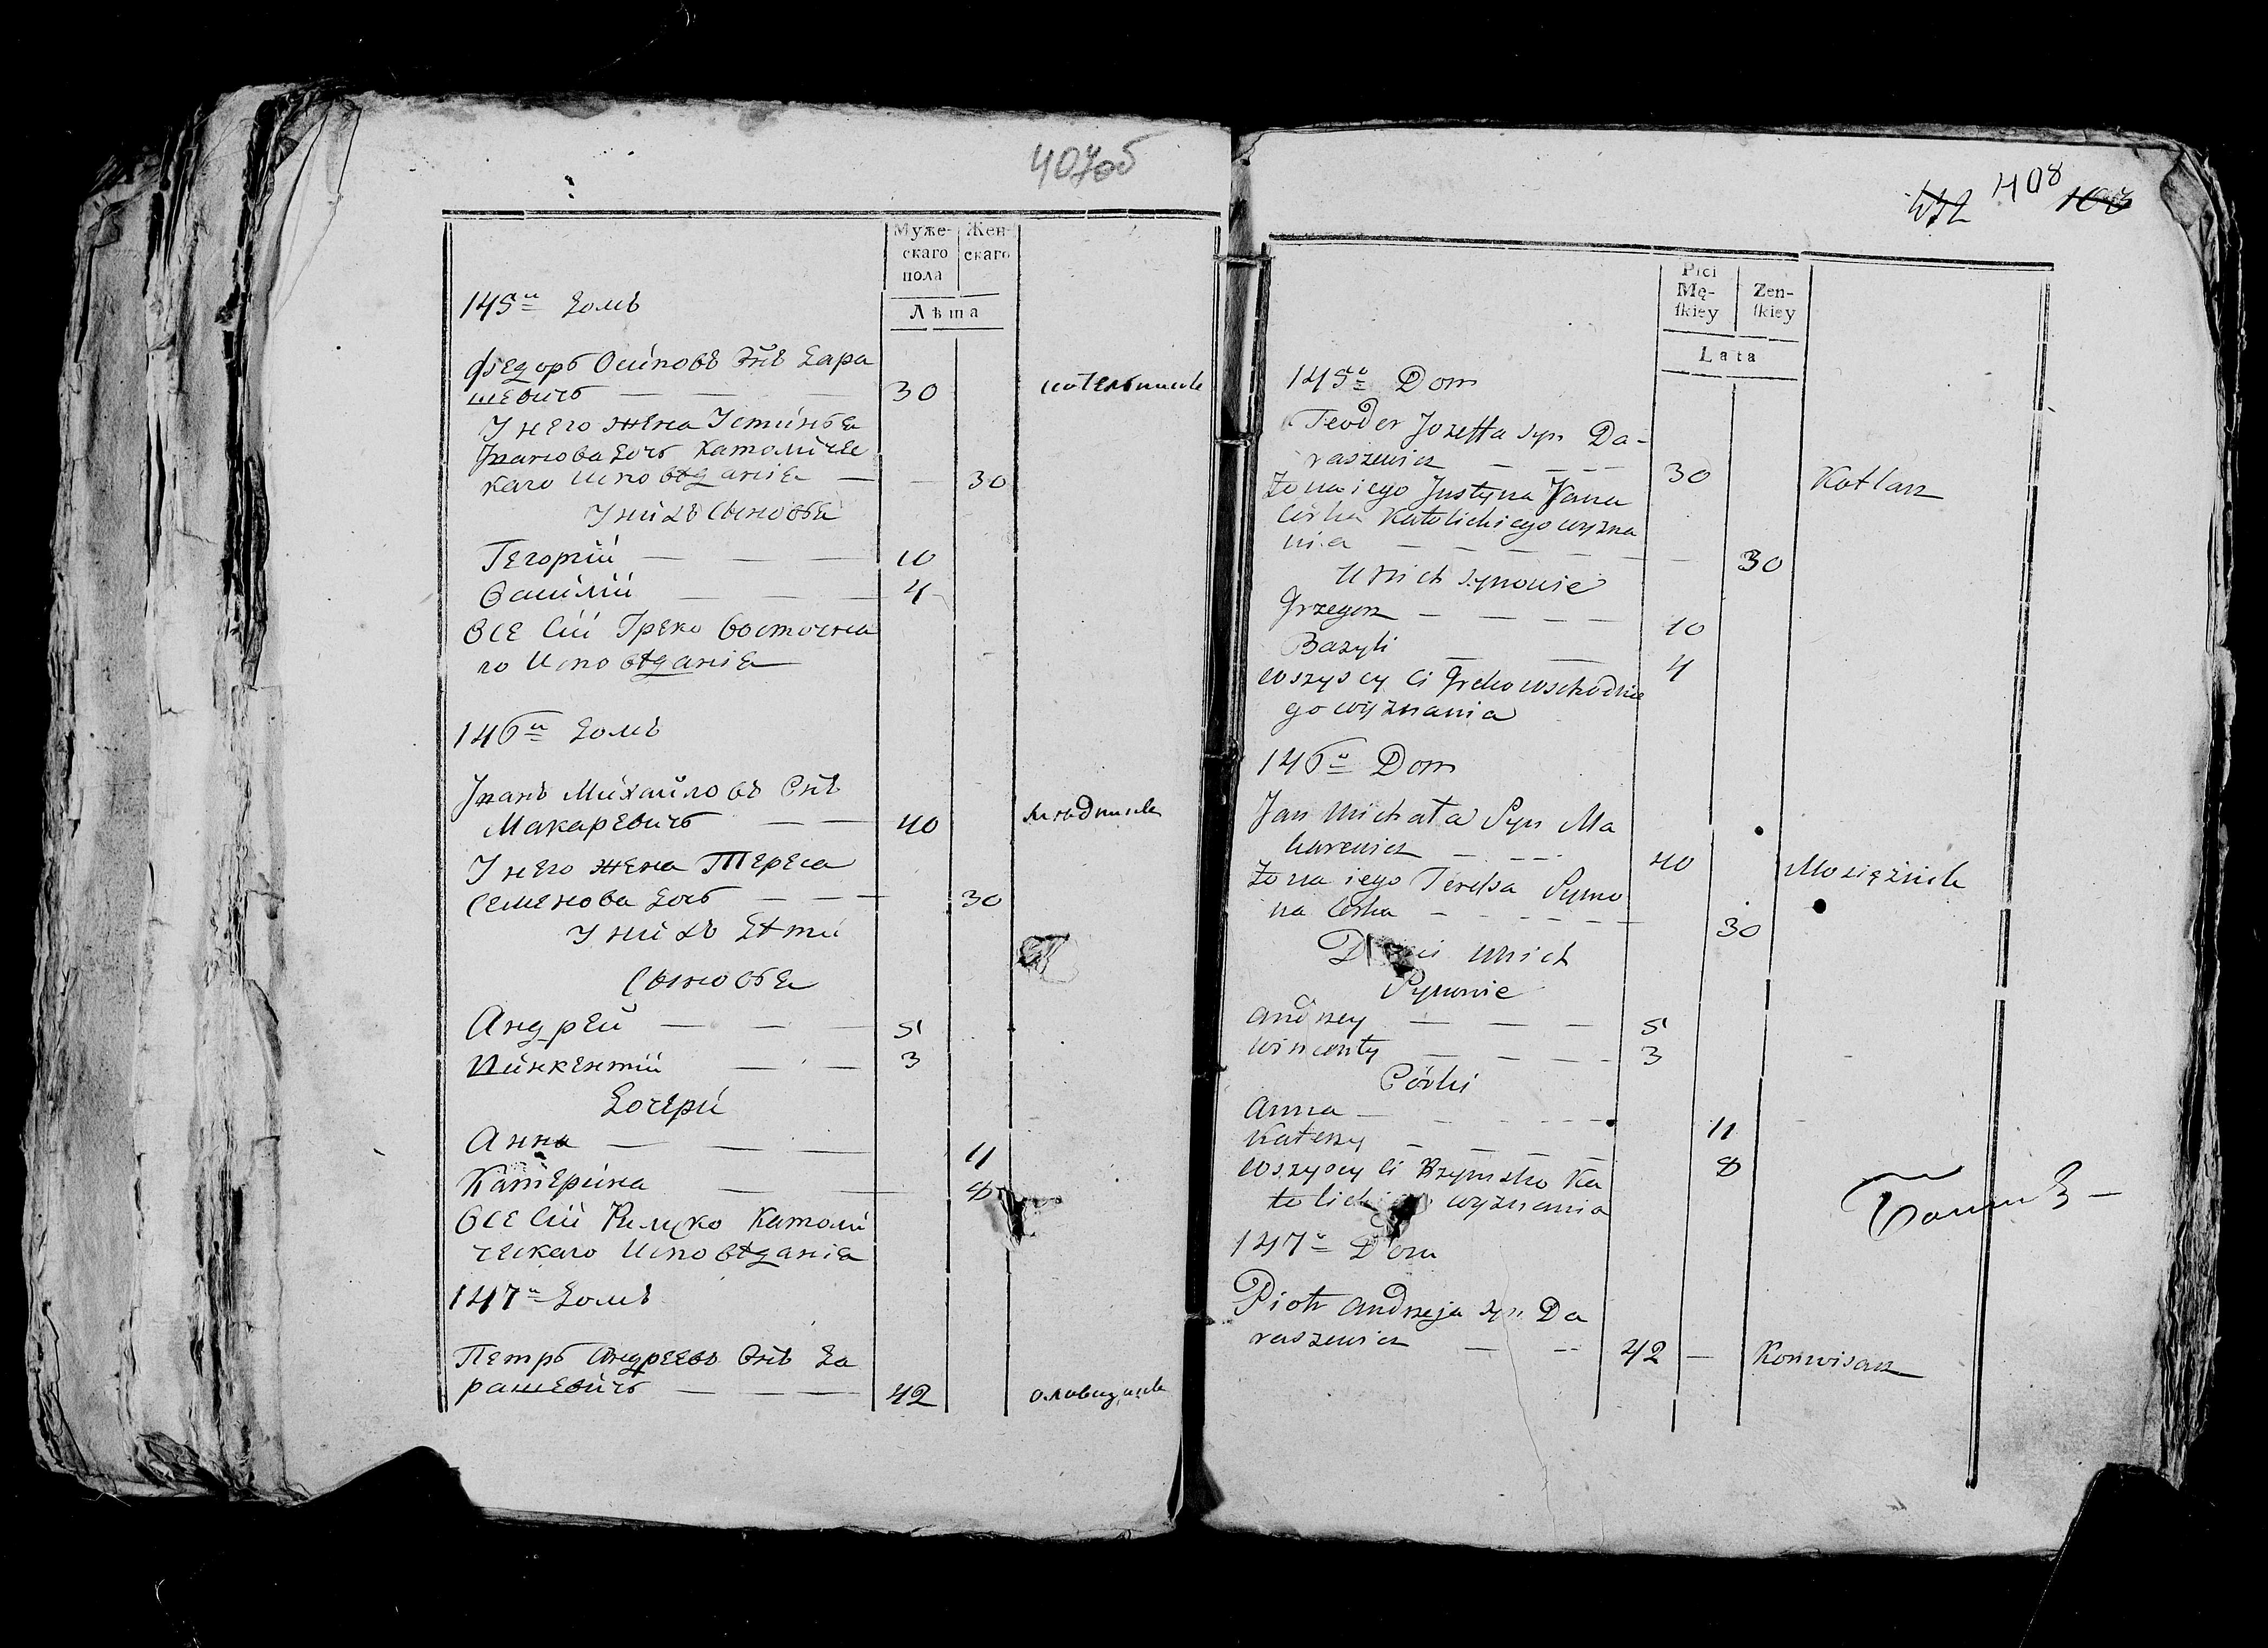 407об
Муже-
скаго
пола
Жен-
скаго
Лѣта
145й домъ
Федоръ Осиповъ Снъ Дара
шевичъ — — — 30 котельникъ
У него жена Устинья
Иванова дочь Католиче
каго Исповѣданія — — 30
У нихъ Сыновья
Гегоргій — — — 10
Василій — — — 4
Все Сіи Греко Восточна
го Исповѣданія
146й домъ
Иванъ Михайловъ Снъ
Макаревичъ — — 40 мѣдникъ
У него жена Тереса
Семенова дочь — — — 30
У нихъ дѣти
Сыновья
Андрей — — — 5
Винкентій — — 3
Дочери
Анна — — — 11
Катерина — — 8
Все Сіи Римско Католи
ческаго Исповѣданія
147й домъ
Петръ Андреевъ Снъ Да
рашевичъ — — — 42
408
Płci
Mę-
ſkiey
Zen-
ſkiey
Lata
145o Dom
Teodor Jozeffa syn Da-
raszewicz — — — — 30 Kotlarz
Zona iego Justyna Jana
Corka Katolickiego wyzna
nia — — — — — — 30
U nich synowie
Grzegorz — — — — 10
Bazyli — — 4
wszyscy Ci Greko wschodnie
go wyznania
146o Dom
Jan Michała Syn Ma
karewicz — — — — 40 Mosiężnik
Zona iego Teressa Symo
na Corka — — — — — — 30
Dzieci u nich
Synowie
Andrzey — — — 5
Wincenty — — — — 3
Córki
Anna — — — — — 11
Katerzy — — — — 8
wszyscy Ci Rzymsko Ka
tolickiego wyznania
147o Dom
Piotr Andrzeja syn Da
raszewicz — — 42 — Konwisarz